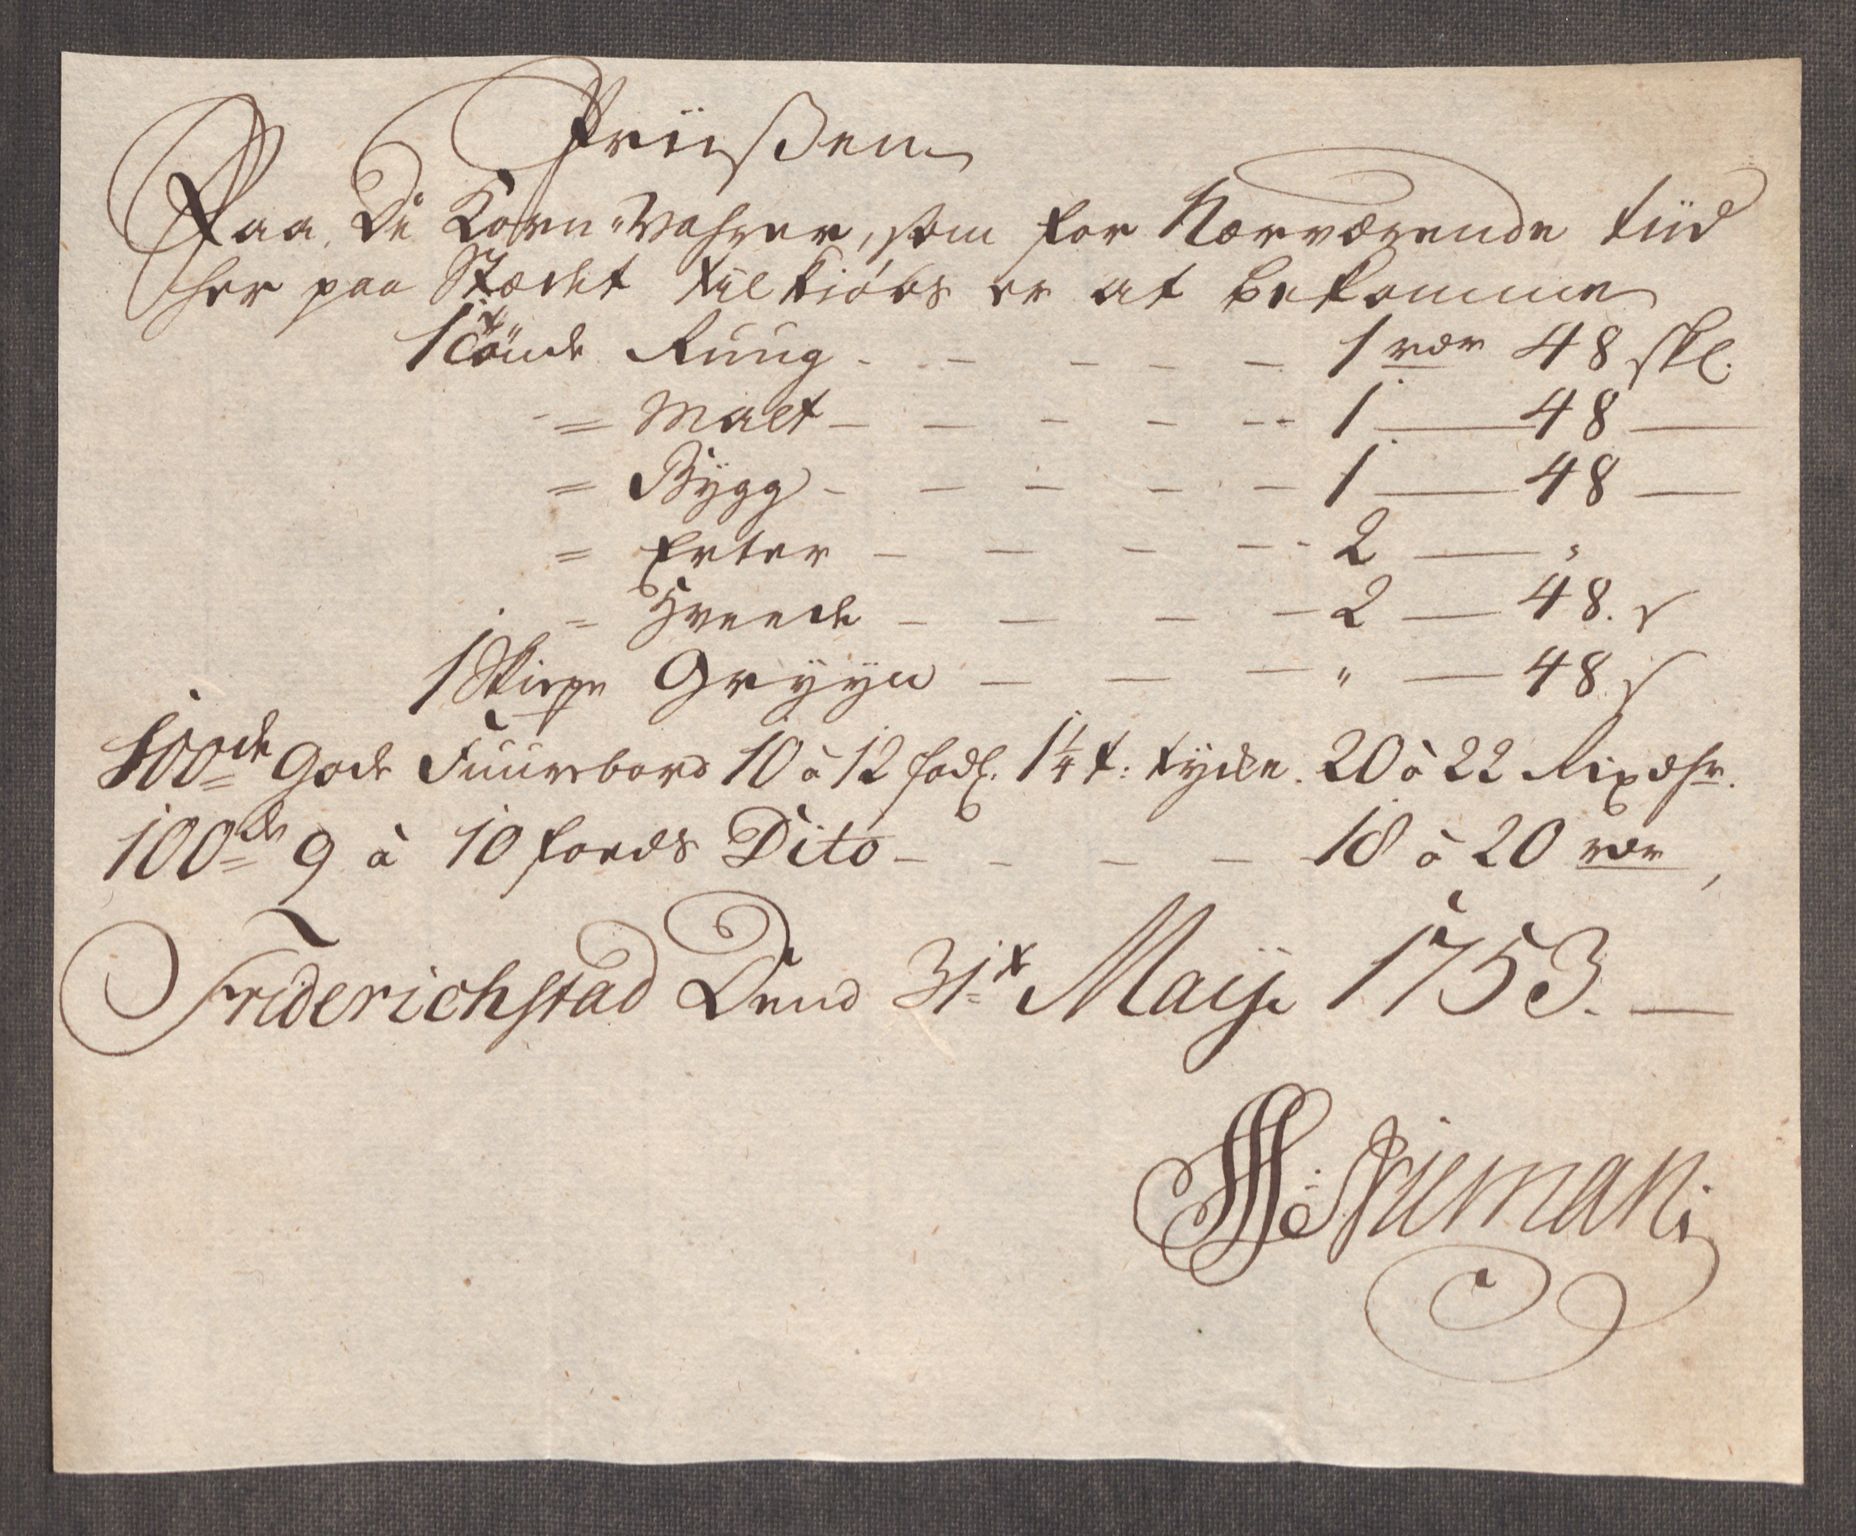 Priisßen
Paa De Korn-Wahrer, som for Nærværende tiid
her paa Stædet til kiøbs er at bekomme
1 tönde Ruug - - - - - 1 rdr 48 skl.
= Malt - - - - - 1 — 48 —
= Bygg - - - - - 1 — 48 —
= Erter - - - - - 2 — "
= Hveede - - - - - 2 — 48. s
1 Skiepe Gryyn - - - " — 48. s
100de Gode Fuurebord 10 à 12 fods. 1 1/4 t: tyche. 20 à 22 Rixdhr.
100de 9 à 10 foeds Dito - - - - 18 à 20 rdr,
Friderichstad Dend 31t Maij 1753. —